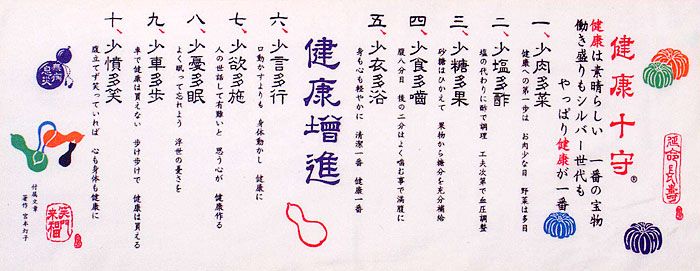 健康十守®
延命長寿
健康は素晴らしい 一番の宝物
働き盛りもシルバー世代も
やっぱり健康が一番
一、少肉多菜
健康への第一歩は お肉少な目 野菜は多目
二、少塩多酢
塩の代わりに酢で調理 工夫次第で血圧調整
三、少糖多果
砂糖はひかえて 果物から糖分を充分補給
四、少食多噛
腹八分目 後の二分はよく噛む事で満腹に
五、少衣多浴
身も心も軽やかに 清潔一番 健康一番
健康增進
六、少言多行
口動かすよりも 身体動かし 健康に
七、少欲多施
人の世話して有難いと 思う心が 健康作る
八、少憂多眠
よく眠って忘れよう 浮世の憂さを
九、少車多歩
車で健康は買えない 歩け歩けで 健康は買える
十、少憤多笑
腹立てず笑っていれば 心も身体も健康に
無病息災
付属文章
著作 宮本
笑門来福